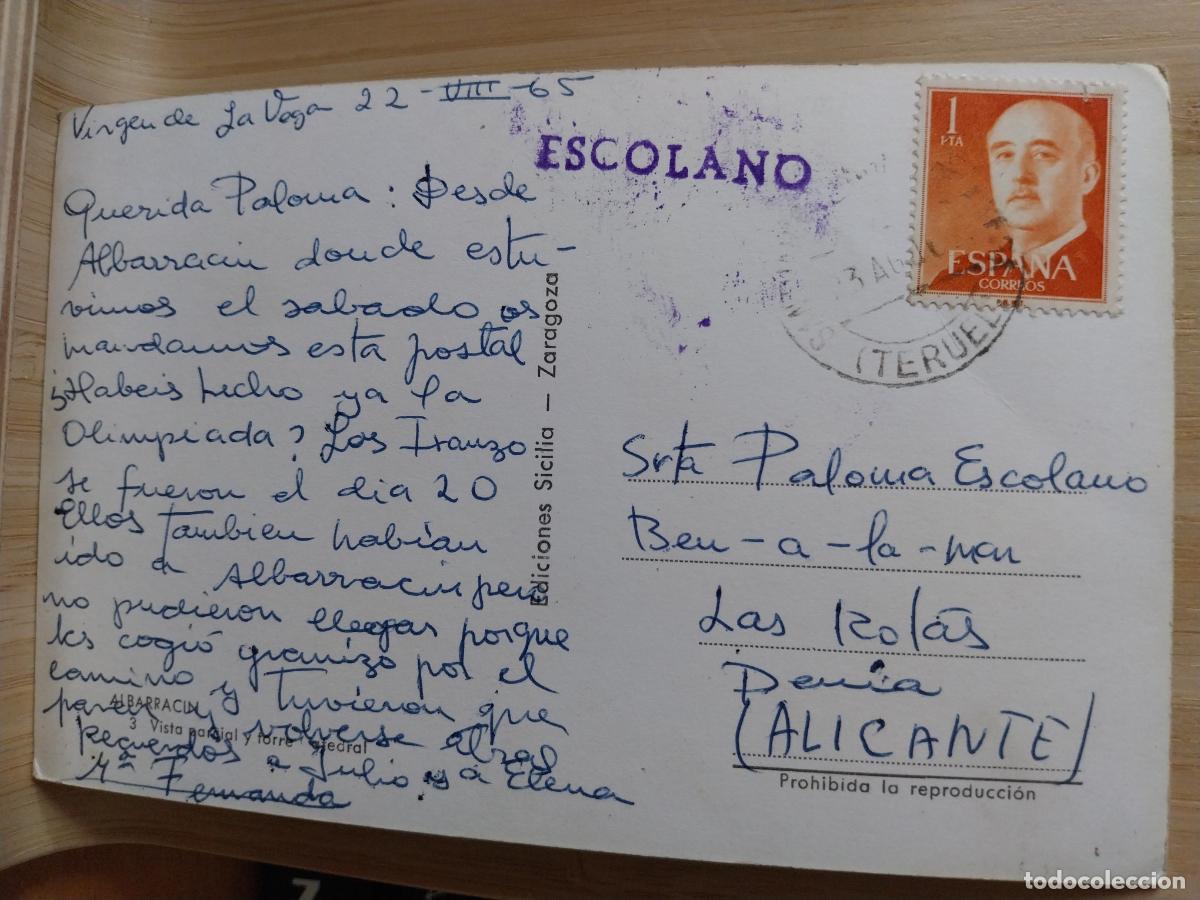 Virgen de La Vega 22-VIII-65
Querida Paloma: Desde
Albarracin donde estu-
vimos el sabado os
mandamos esta postal
¿Habeis hecho ya la
Olimpiada? Los Iranzo
se fueron el dia 20
Ellos tambien habian
ido a Albarracin pero
no pudieron llegar porque
les cogió granizo por el
camino y tuvieron que
parar y volverse atras
Recuerdos a Julio y a Elena
Mª Fernanda
ALBARRACIN
3 Vista parcial y torre Catedral
Ediciones Sicilia — Zaragoza
ESCOLANO
1
PTA
ESPAÑA
CORREOS
(TERUEL)
Srta Paloma Escolano
Ben-a-la-mar
Las Rotas
Denia
(ALICANTE)
Prohibida la reproducción
todocoleccion